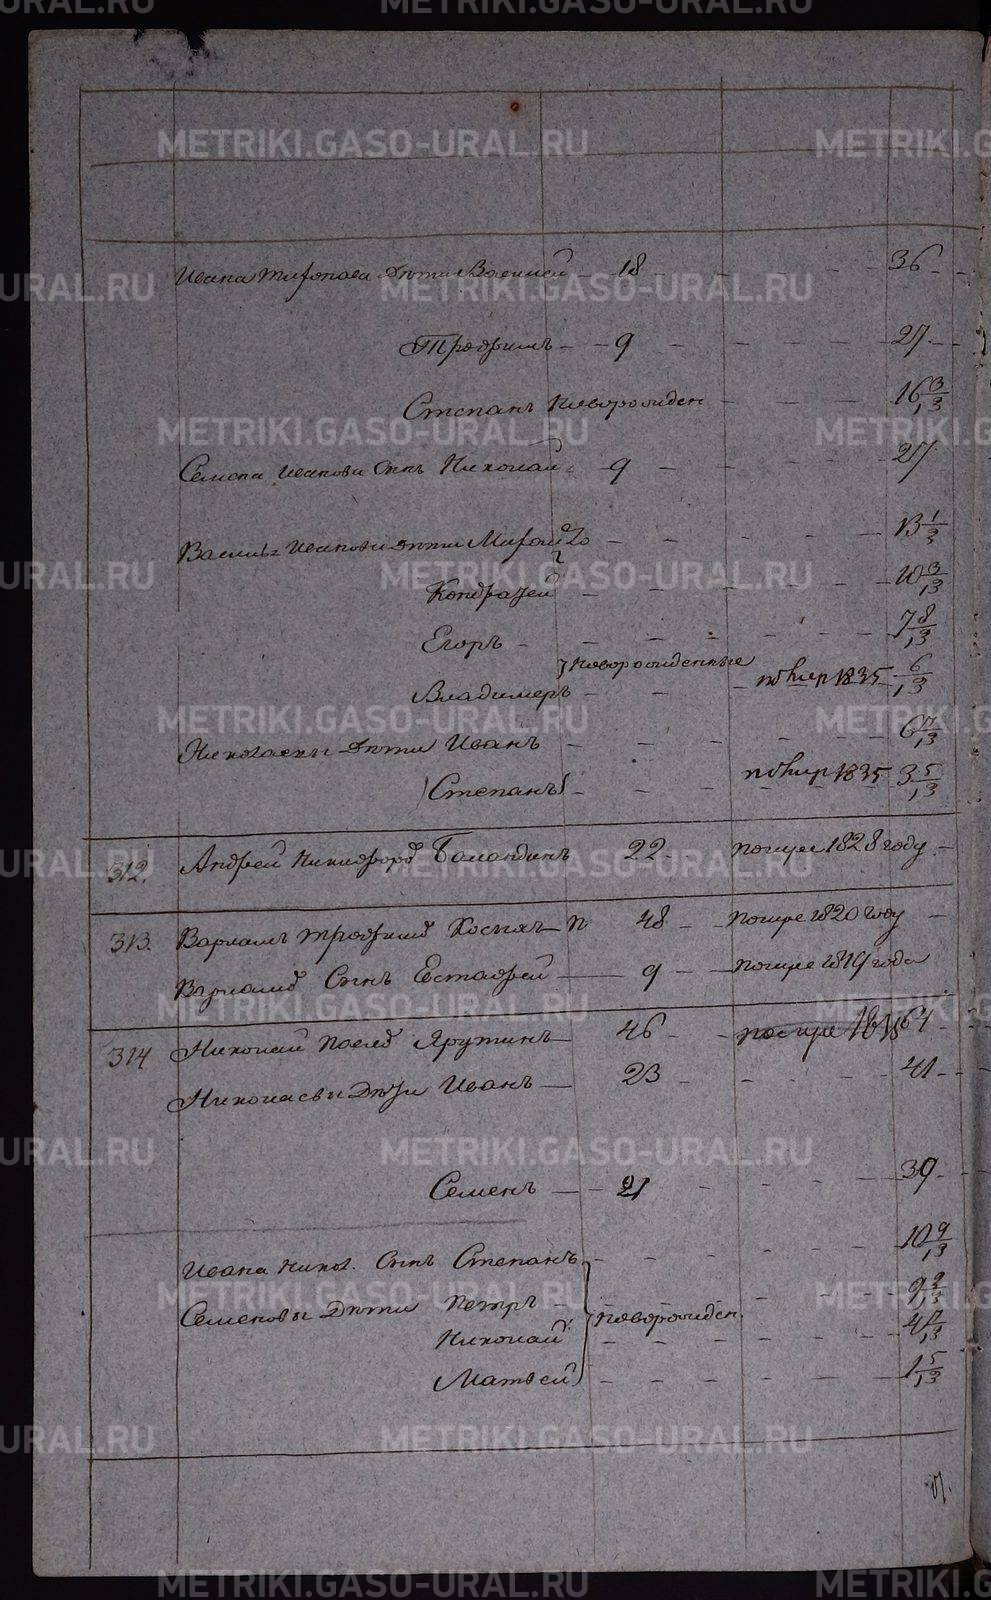 METRIKI.GASO-URAL.RU
Ивана дѣти Василей 18 36
Трофимъ 9 27
Степанъ новорожден 16 3/13
Семена Иванова сынъ Николай 9 27
Василья Иванова дѣти 13 1/3
Кондратей 10 3/13
Егоръ 7 8/13
новорожденные
Владимеръ 1835 6/13
Николаевы дѣти Иванъ 6 7/13
Степанъ 1835 3 5/13
312. Андрей Никифоровъ Баландинъ 22 помре 1828 году
313. Варламъ Трофимовъ 48 помре 1820 году
Варламовъ сынъ Естафей 9 помре 1819 года
314 Николай Ярутинъ 46 помре 64
Николаевы дѣти Иванъ 23 41
Семенъ 21 39
Ивана Никол. сынъ Степанъ 10 9/13
Семеновы дѣти Петръ 9 2/13
новорожден.
Николай 4 7/13
Матвей 1 5/13